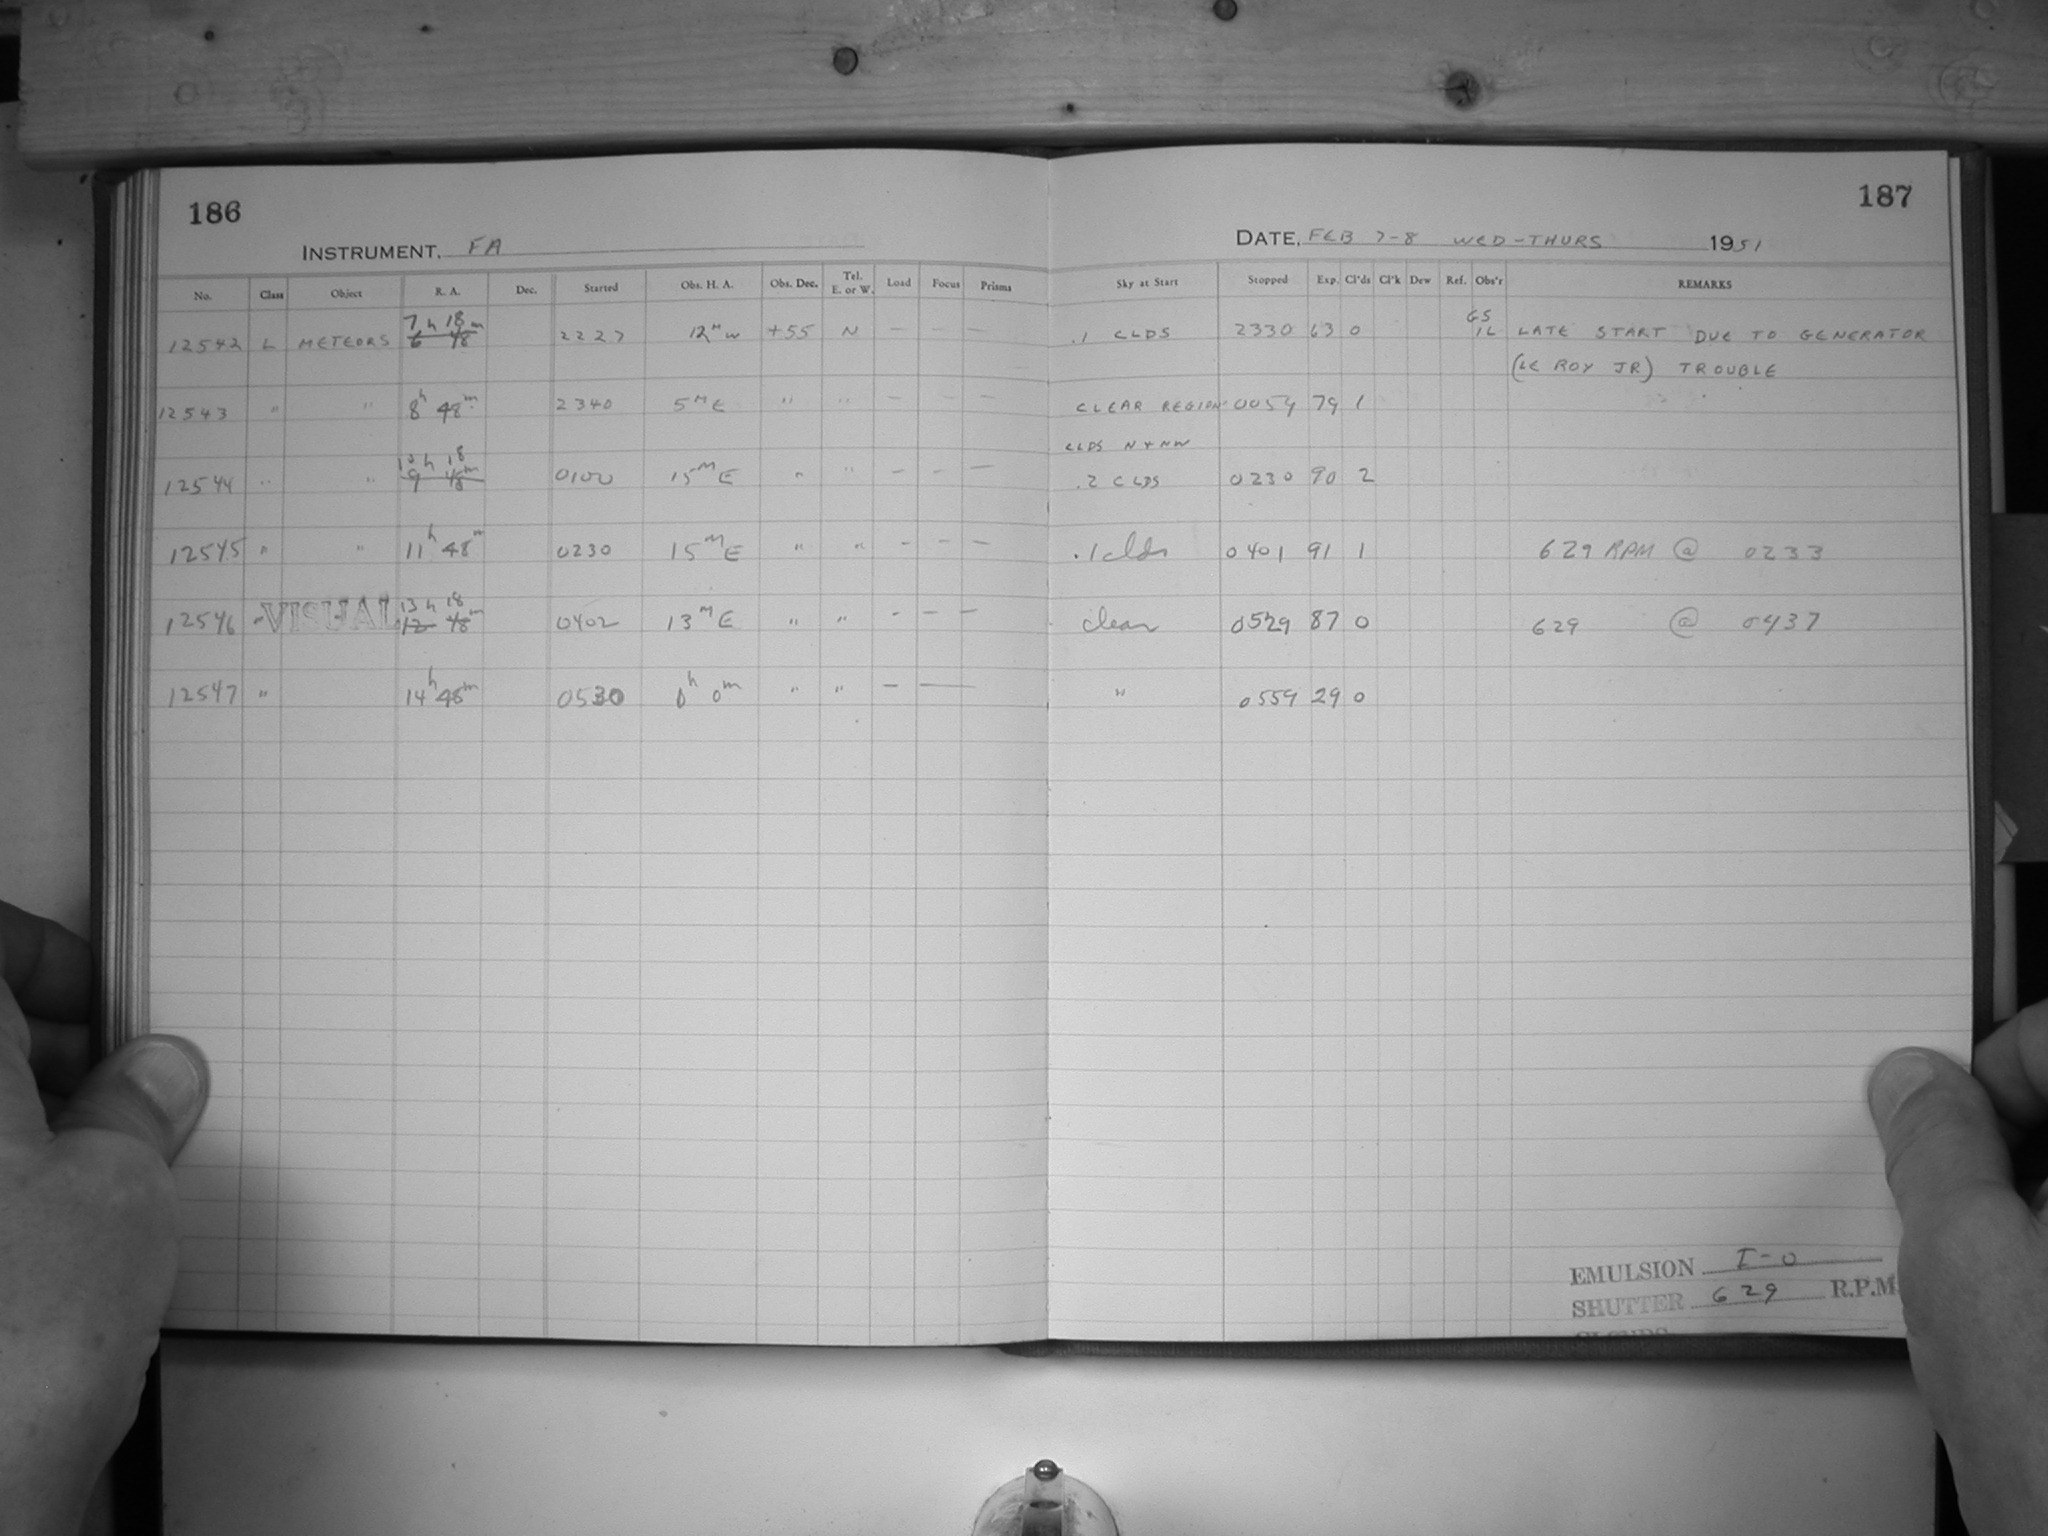 186
187
INSTRUMENT, FA
DATE, FEB 7-8 WED-THURS 1951
No. Class Object R. A. Dec. Started Obs. H. A. Obs. Dec. Tel. E. or W. Load Focus Prisms Sky at Start Stopped Exp. Cl'ds Cl'k Dew Ref. Obs'r REMARKS
7h 18m GS
12542 L METEORS 6 48 2227 12m W +55 N — — — .1 CLDS 2330 63 0 IL LATE START DUE TO GENERATOR
(LE ROY JR) TROUBLE
12543 " " 8h 48m 2340 5m E " " — — — CLEAR REGION 0059 79 1
CLDS N + NW
10h 18
12544 " " 9 48m 0100 15m E " " — — — .2 CLDS 0230 90 2
12545 " " 11h 48m 0230 15m E " " — — — .1 clds 0401 91 1 629 RPM @ 0233
13h 18
12546 " VISUAL 12 48m 0402 13m E " " — — — clear 0529 87 0 629 @ 0437
12547 " 14h 48m 0530 0h 0m " " — — " 0559 29 0
EMULSION I-0
SHUTTER 629 R.P.M.